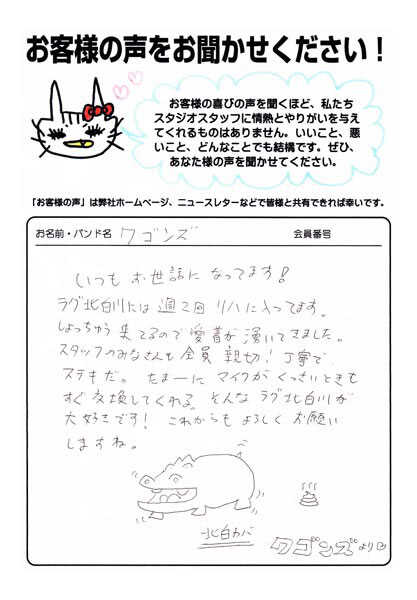 お客様の声をお聞かせください！
お客様の喜びの声を聞くほど、私たち
スタジオスタッフに情熱とやりがいを与え
てくれるものはありません。いいこと、悪
いこと、どんなことでも結構です。ぜひ、
あなた様の声を聞かせてください。
「お客様の声」は弊社ホームページ、ニュースレターなどで皆様と共有できれば幸いです。
お名前・バンド名 ワゴンズ 会員番号
いつもお世話になってます!
ラグ北白川には週2回リハに入ってます。
しょっちゅう来てるので愛着が湧いてきました。
スタッフのみなさんも全員親切!丁寧で
ステキだ。たまーにマイクがくっさいときも
すぐ交換してくれる。そんなラグ北白川が
大好きです! これからもよろしくお願い
しますね。
北白カバ
ワゴンズより